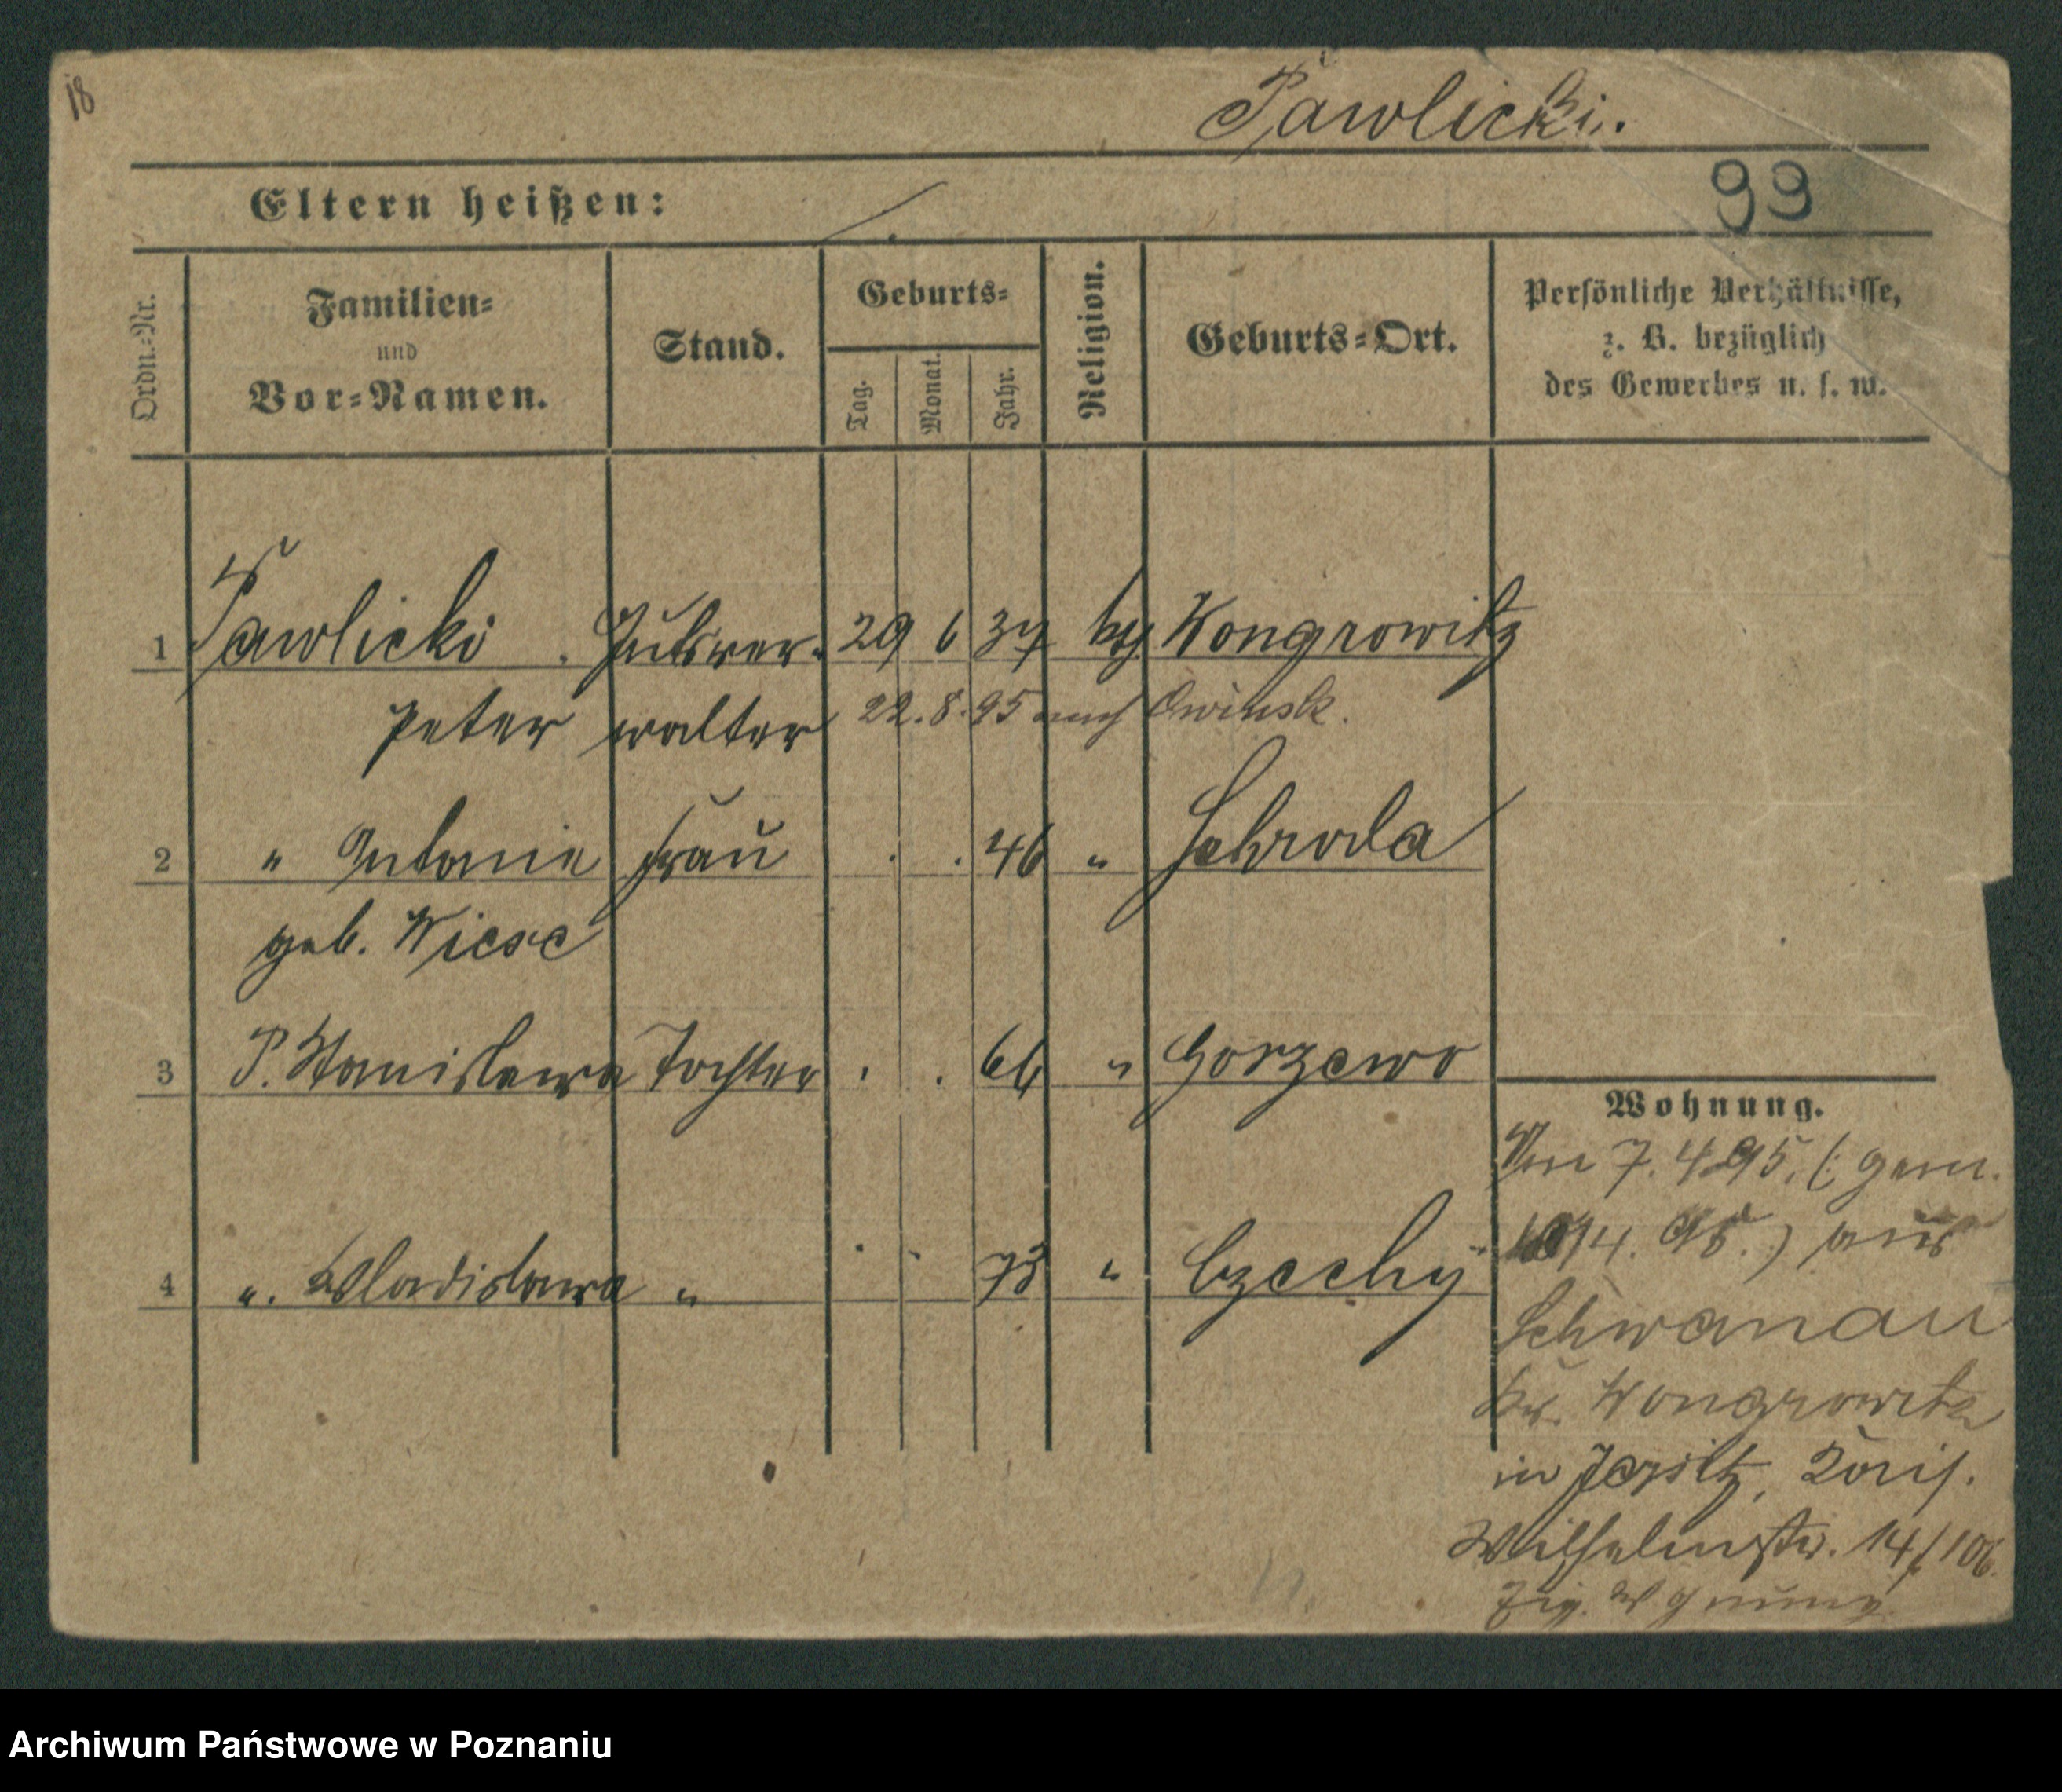 18
Pawlicki.
99
Eltern heißen:
Ordn.-Nr.
Familien-
und
Vor-Namen.
Stand.
Geburts-
Tag.
Monat.
Jahr.
Religion.
Geburts-Ort.
Persönliche Verhältnisse,
z. B. bezüglich
des Gewerbes u. s. w.
1 Pawlicki Gutsver- 29 6 37 Wongrowitz
Peter walter 22.8.95 nach Owinsk.
2 " Antonie Frau . . 46 " Schroda
geb. Wiese
3 P. Stanislawa Tochter . . 66 " Gorzewo
4 ". Wladislawa " . . 73 " Czechy
Wohnung.
Von 7.4.95. (: gem.
4. 95. :) aus
Schwanau
Kr. Wongrowitz
in Jersitz,
Wilhelmstr. 14/106.